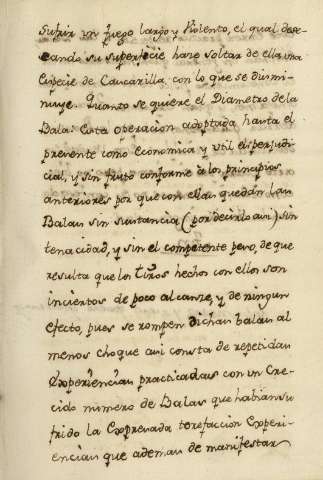 Sufrir un fuego largo y violento, el qual dese-
cando su superficie hase soltar de ella una
Especie de Cascarilla, con lo que se dismi-
nuye. Quanto se quiere, el Diametro de la
Bala: Esta operacion adoptada hasta el
presente como economica y util es perjudi-
cial, y sin fruto conforme a los principios
anteriores por que con ella quedan las
Balas sin sustancia (por decirlo asi) sin
tenacidad, y sin el competente peso, de que
resulta que los Tiros hechos con ellos son
inciertos de poco alcanse, y de ningun
efecto, pues se rompen dichas balas al
menos choque asi consta de repetidas
Experiencias practicadas con un Cre-
cido numero de Balas que habian su
frido la Expresada torefaccion Experi-
encias que ademas de manifestar